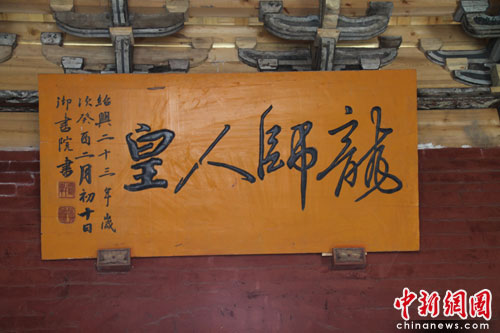 龍師人皇
紹興二十三年歲
次癸酉二月初十日
御書院書
中新網圖
chinanews.com